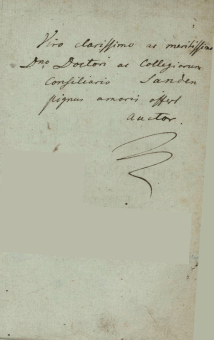 Viro clarissimo ac meritissimo
Dno Doctori ac Collegiorum
Consiliario Sanden
pignus amoris offert
auctor.